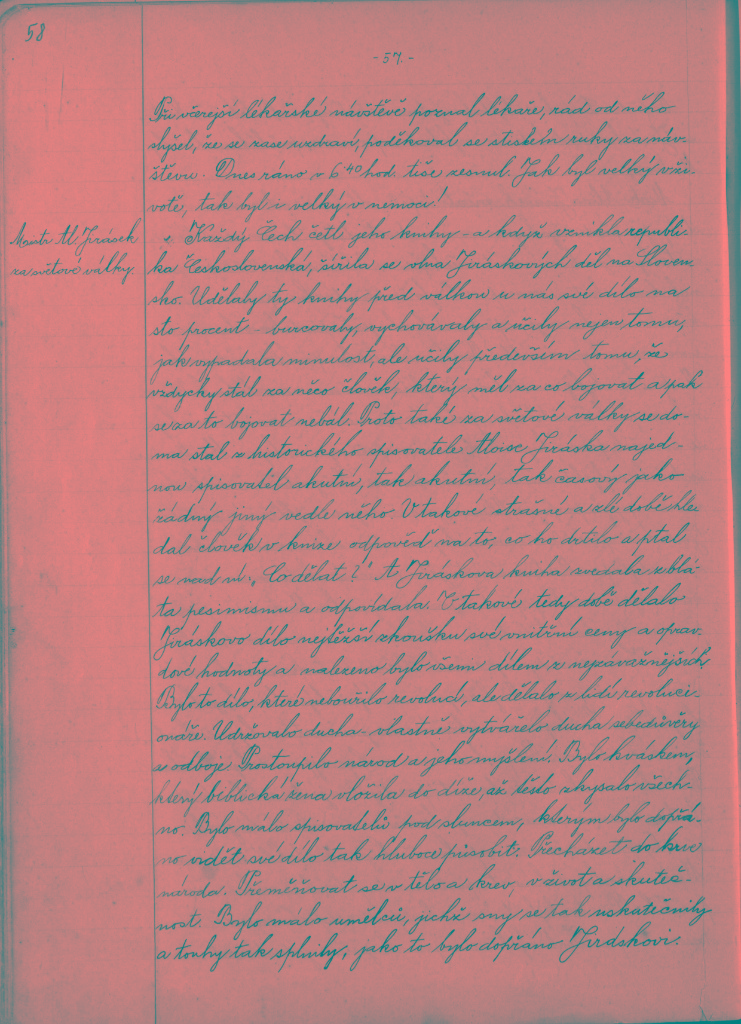 58
- 57. -
Při včerejší lékařské návštěvě poznal lékaře, rád od něho
slyšel, že se zase uzdraví, poděkoval se stiskem ruky za náv-
štěvu. Dnes ráno v 6.40 hod. tiše zesnul. Jak byl velký v ži-
votě, tak byl i velký v nemoci!
Mistr Al Jirásek
za světové války.
Každý Čech četl jeho knihy - a když vznikla republi-
ka Československá, šířila se vlna Jiráskových děl na Sloven-
sko. Udělaly ty knihy před válkou u nás své dílo na
sto procent - burcovaly, vychovávaly a učily nejen tomu,
jak vypadala minulost, ale učily především tomu, že
vždycky stál za něco člověk, který měl za co bojovat a pak
se za to bojovat nebál. Proto také za světové války se do-
ma stal z historického spisovatele Aloise Jiráska najed-
nou spisovatel akutní, tak akutní, tak časový jako
žádný jiný vedle něho. V takové strašné a zlé době hle-
dal člověk v knize odpověď na to, co ho drtilo a ptal
se nad ní: „Co dělat?" A Jiráskova kniha zvedala z blá-
ta pesimismu a odpovídala. V takové tedy době dělalo
Jiráskovo dílo nejtěžší zkoušku své vnitřní ceny a oprav-
dové hodnoty a nalezeno bylo všemi dílem z nejzávažnějších.
Bylo to dílo, které nebouřilo revolucí, ale dělalo z lidí revoluci-
onáře. Udržovalo ducha - vlastně vytvářelo ducha sebedůvěry
a odboje. Prostoupilo národ a jeho myšlení. Bylo kváskem,
který biblická žena vložila do díže, až těsto zkysalo všech-
no. Bylo málo spisovatelů pod sluncem, kterým bylo dopřá-
no vidět své dílo tak hluboce působit. Přecházet do krve
národa. Přeměňovat se v tělo a krev, v život a skuteč-
nost. Bylo málo umělců, jichž sny se tak uskutečnily
a touhy tak splnily, jako to bylo dopřáno Jiráskovi.